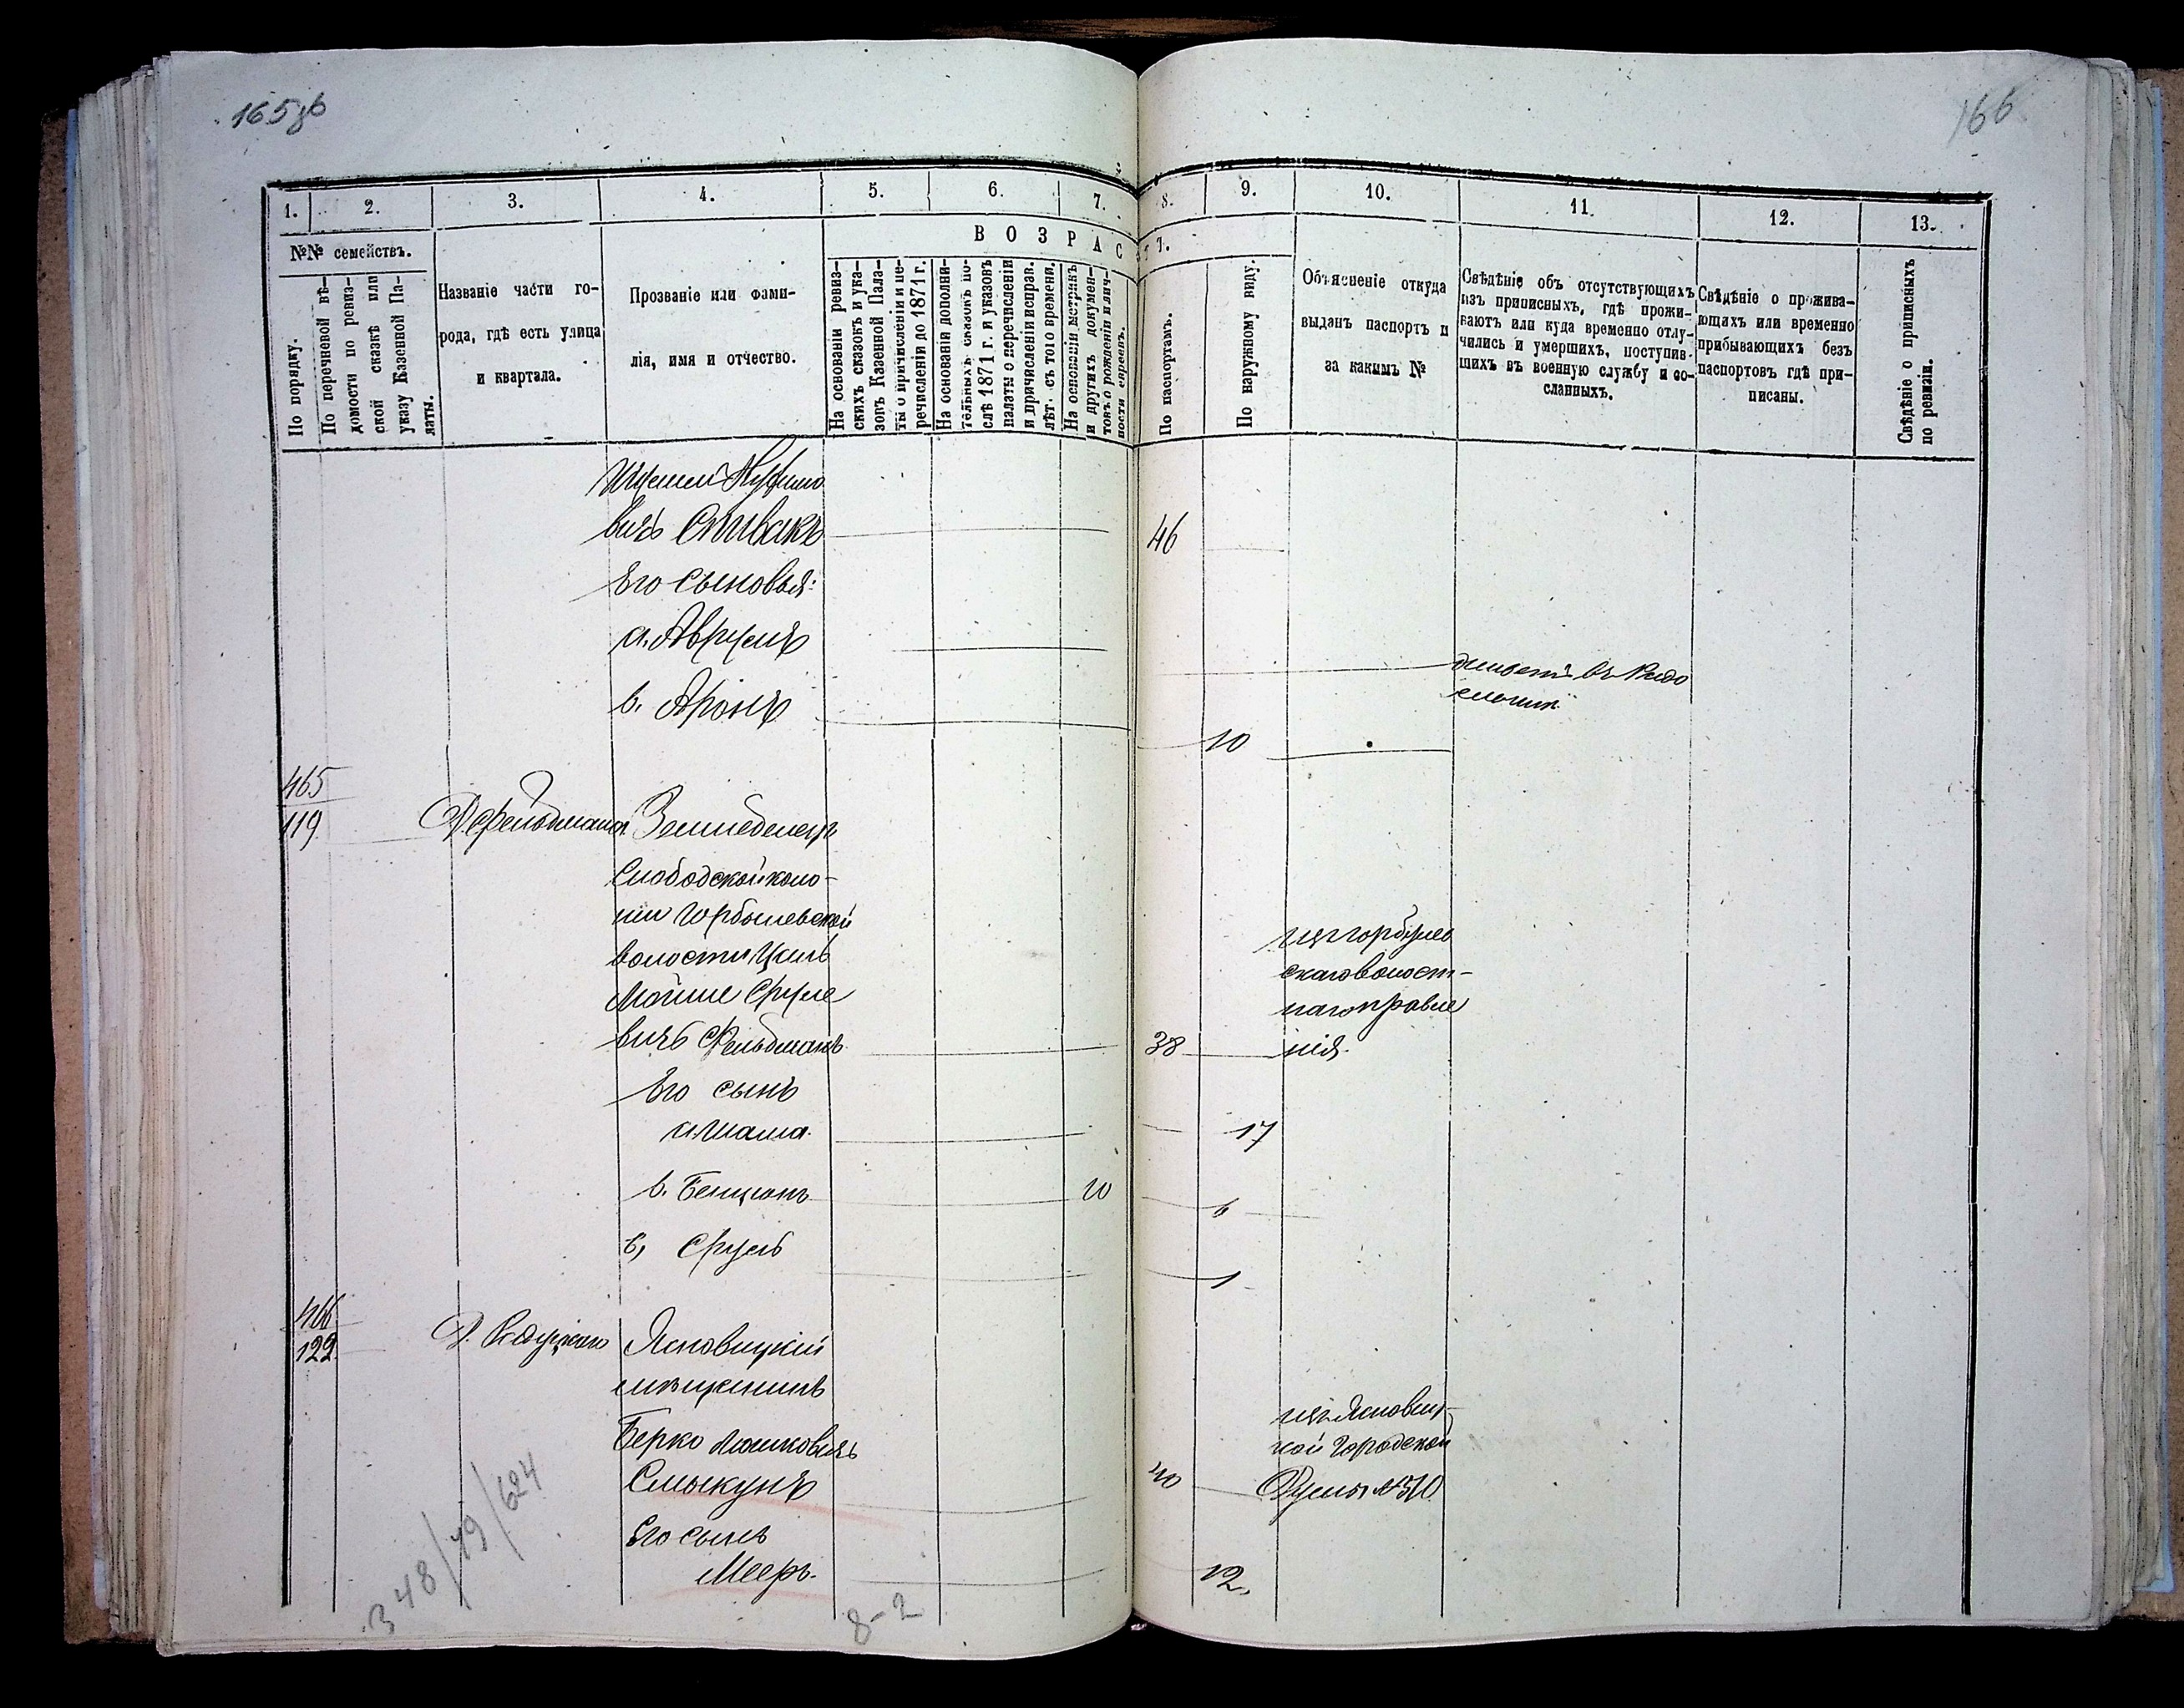 165об
166
1.
2.
3.
4.
5.
6.
7.
8.
9.
10.
11.
12.
13.
№№ семействъ.
По порядку.
По перечневой вѣ-
домости по ревиз-
ской сказкѣ или
указу Казенной Па-
латы.
Названіе части го-
рода, гдѣ есть улица
и квартала.
Прозваніе или фами-
лія, имя и отчество.
ВОЗРАСТЪ.
На основаніи ревиз-
скихъ сказокъ и ука-
зовъ Казенной Пала-
ты о причисленіи и пе-
речисленіи до 1871 г.
На основаніи дополни-
тельныхъ сказокъ по-
слѣ 1871 г. и указовъ
палаты о перечисленіи
и причисленіи исправ.
лѣт. съ того времени.
На основаніи метрикъ
и другихъ докумен-
товъ о рожденіи и лич-
ности евреевъ.
По паспортамъ.
По наружному виду.
Объясненіе откуда
выданъ паспортъ и
за какимъ №
Свѣдѣніе объ отсутствующихъ
изъ приписныхъ, гдѣ прожи-
ваютъ или куда временно отлу-
чились и умершихъ, поступив-
шихъ въ военную службу и со-
сланныхъ.
Свѣдѣніе о прожива-
ющихъ или временно
прибывающихъ безъ
паспортовъ гдѣ при-
писаны.
Свѣдѣніе о приписныхъ
по ревизіи.
вичъ Спивакъ
46
Его сыновья:
а. Аврумъ
живетъ въ Радо
мыслѣ
в. Аронъ
10
465
119
Д. Фельдмана
Земледелецъ
Слободской коло-
ніи Горбулевской
волости Ицко
Мойше Сруле
вичъ Фельдманъ
38
изъ Горбулев
скаго волост-
наго правле
нія.
Его сынъ
а. Шама.
17
б. Бенціонъ
10
6
в, Сруль
1
466
122
Д.
Ясновицкій
мѣщанинъ
Берко Лошковичъ
Смыкунъ
40
Думы № 510
кой Городской
Его сынъ
Мееръ.
12.
348/79/624
8-2